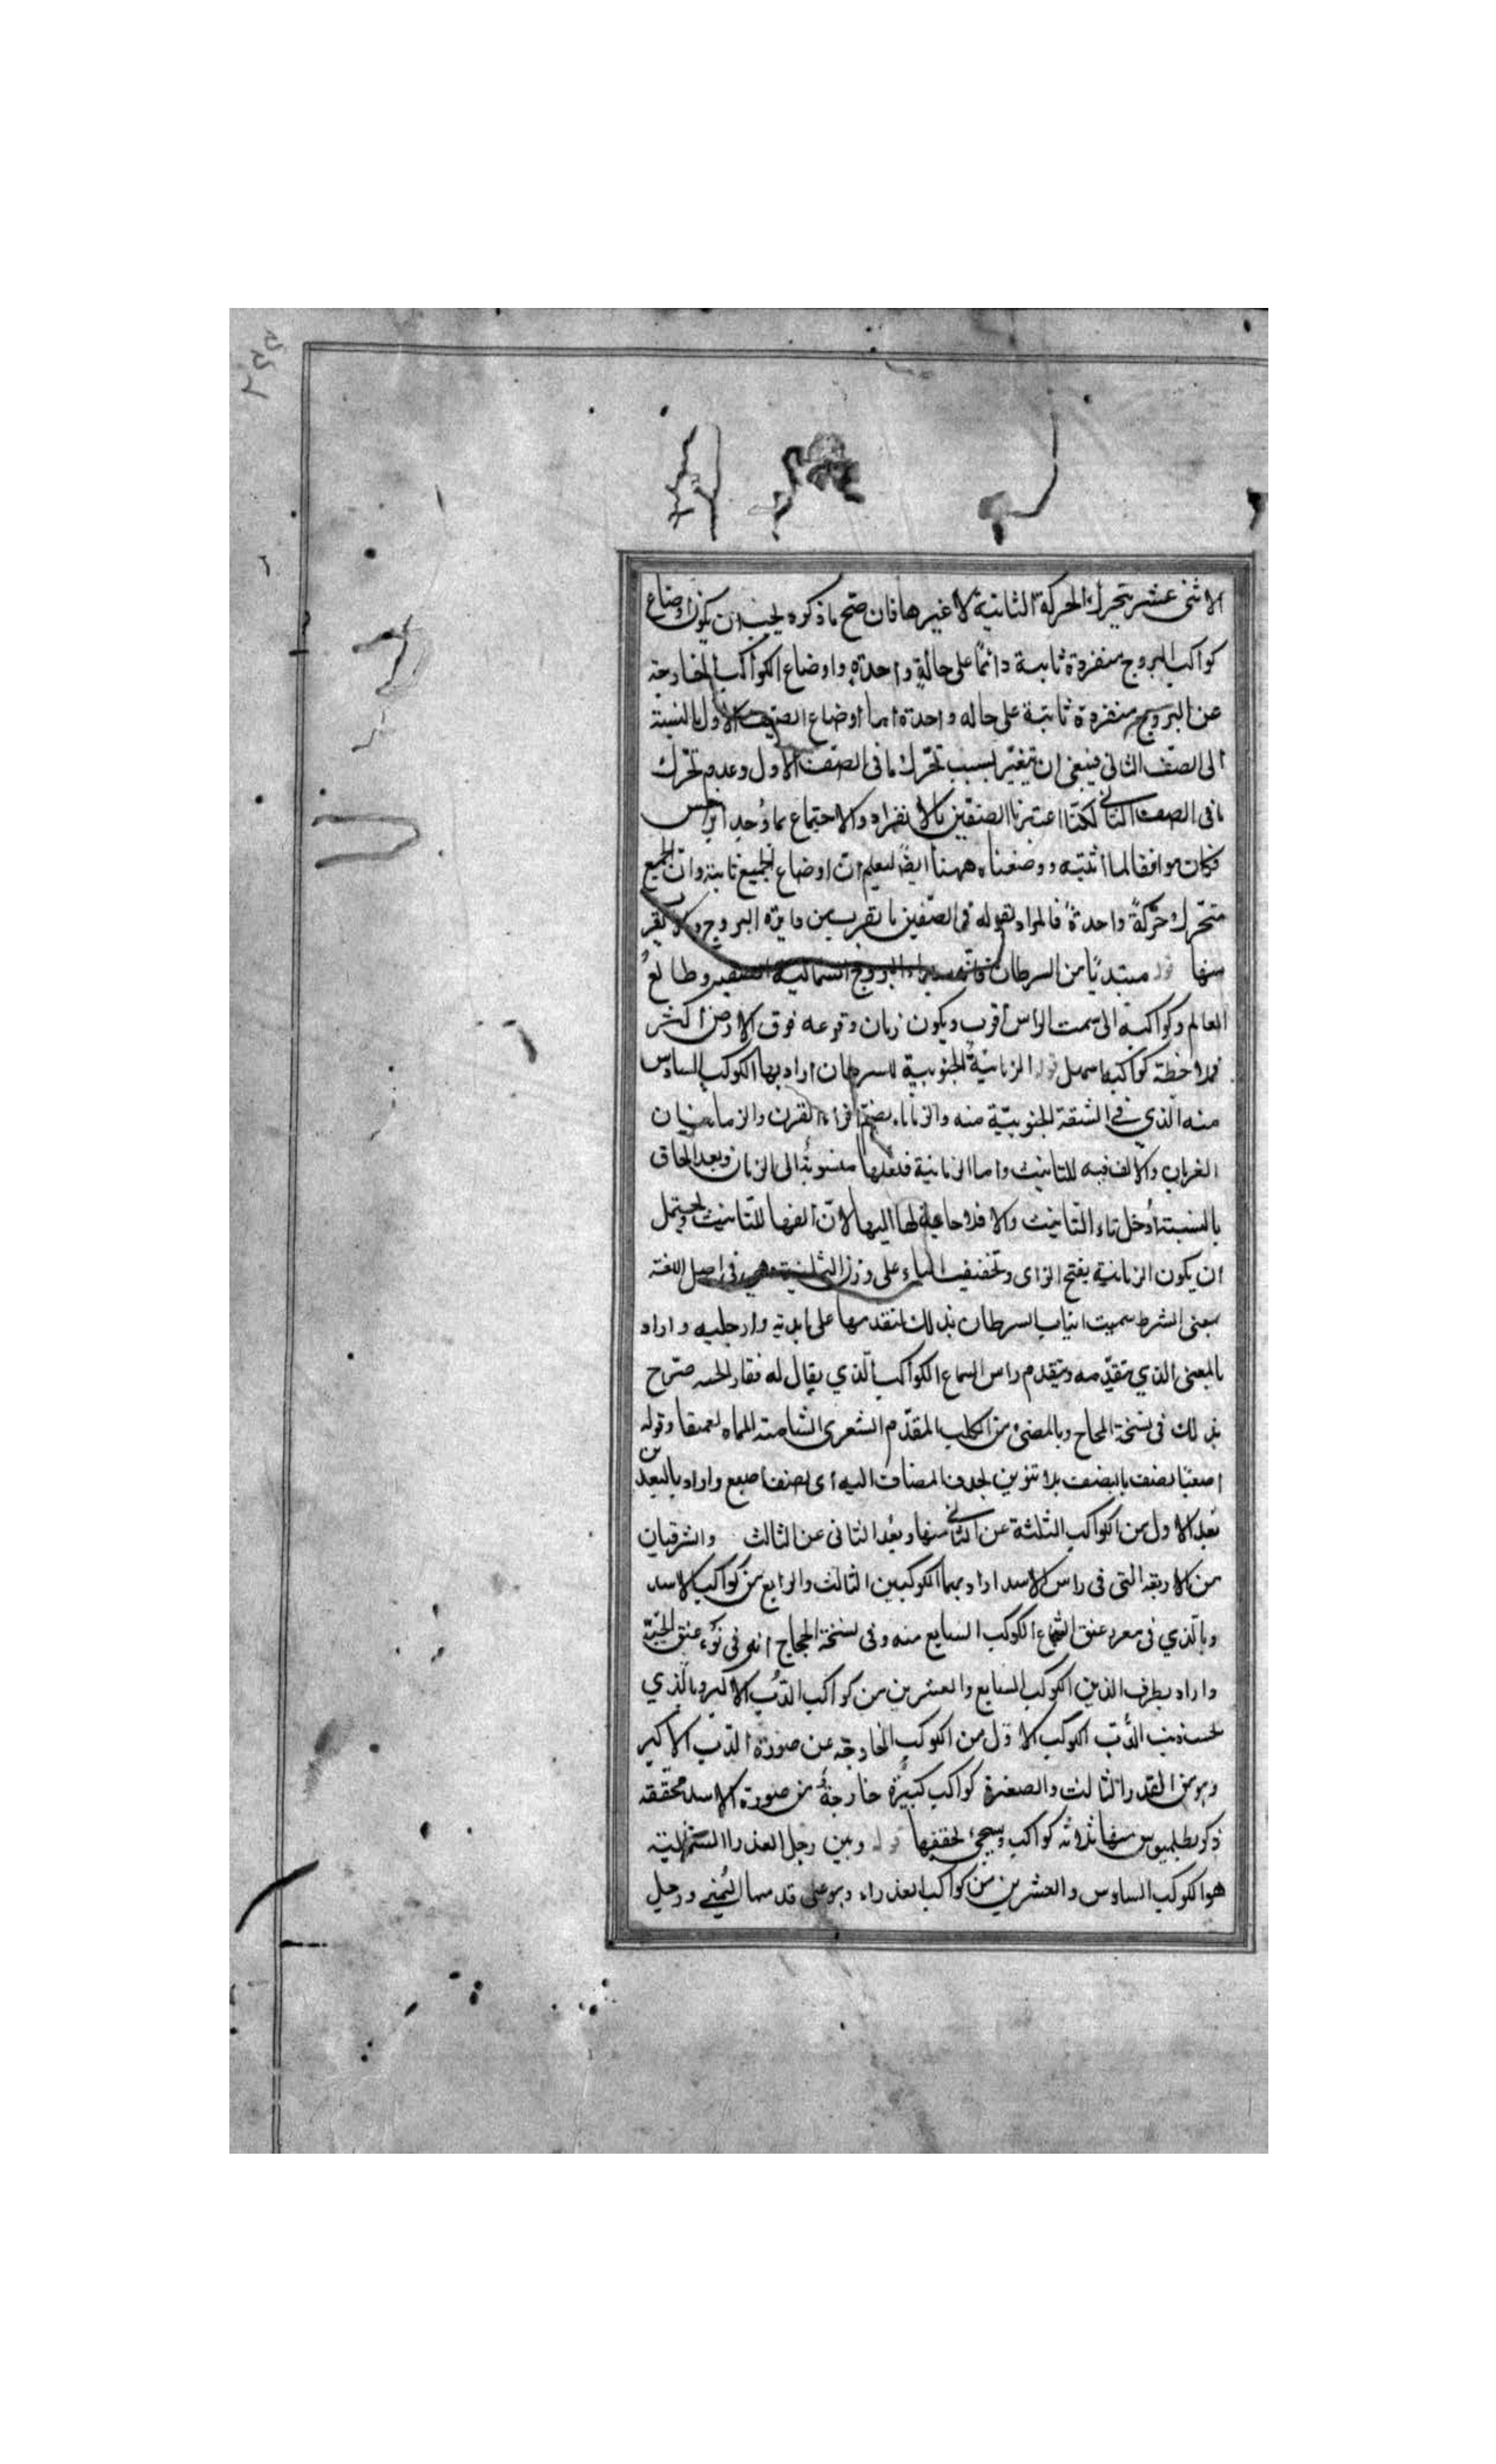 الاثنى عشر يتحرك الحركة الثانية لا غيرها فان صح ما ذكره يجب ان يكون اوضاع
كواكب البروج منفردة ثابتة دائما على حالة واحدة واوضاع الكواكب الخارجة
عن البروج منفردة ثابتة على حاله واحدة اما اوضاع الصنف الاول بالنسبة
الى الصنف الثاني فينبغى ان يتغير بسبب تحرك ما فى الصنف الاول وعدم تحرك
ما فى الصنف الثاني لكنا اعتبرنا الصنفين بالانفراد والاجتماع بما وجد ابرخس
فكان موافقا لما اثبته ووضعناه ههنا ايضا ليعلم ان اوضاع الجميع ثابتة وان الجميع
متحرك حركة واحدة فالمراد بقوله فى الصنفين ما يقرب من دايرة البروج وما لا يقرب
منها قوله مبتديا من السرطان البروج الشمالية وطالع
العالم وكواكبه الى سمت الراس اقرب ويكون زمان وقوعه فوق الارض اكثر
فملاحظة كواكبها سهل قوله الزبانية الجنوبية للسرطان اراد بها الكوكب السادس
منه الذي في الشقة الجنوبية منه والزبانا بضم الزاء القرن والزبانيان
القرنان والالف فيه للتانيث واما الزبانية فلعلها منسوبة الى الزبان وبعد الحاق
بالنسبة ادخل تاء التانيث والا فلا حاجة لها اليها لان الفها للتانيث ويحتمل
ان يكون الزبانية بفتح الزاى وتخفيف الياء على وزن الثمانية وهى فى اصل اللغة
بمعنى الشرط سميت انياب السرطان بذلك لتقدمها على بدنه وارجليه واراد
بالمعنى الذي يتقدمه ويتقدم راس الشجاع الكواكب الذي يقال له فقار صرح
بذلك فى نسخة الحجاج وبالمضئ من الكلب المقدم الشعرى الشامية وقوله
اصبعا نصف بالنصف بلا تنوين لحذف المضاف اليه اى نصف اصبع واراد بالبعدين
بعد الاول من الكواكب الثلثة عن الثاني منها وبعد الثانى عن الثالث والشرقيان
من الاربعة التى فى راس الاسد اراد بهما الكوكبين الثالث والرابع من كواكب الاسد
وبالذي فى مغرز عنق الشجاع الكوكب السابع منه وفى نسخة الحجاج انه فى نوء عنق الحية
واراد بطرف الذنب الكوكب السابع والعشرين من كواكب الدب الاكبر وبالذي
تحت ذنب الدب الكوكب الاول من الكوكب الخارجة عن صورة الدب الاكبر
وهو من القدر الثالث والضفيرة كواكب كثيرة خارجة من صورة الاسد محققة
ذكر بطلميوس منها ثلاثة كواكب وسيجئ تحقيقها قوله وبين رجل العذرا الشمالية
هو الكوكب السادس والعشرين من كواكب العذراء وهو على قدمها اليمنى ورجل